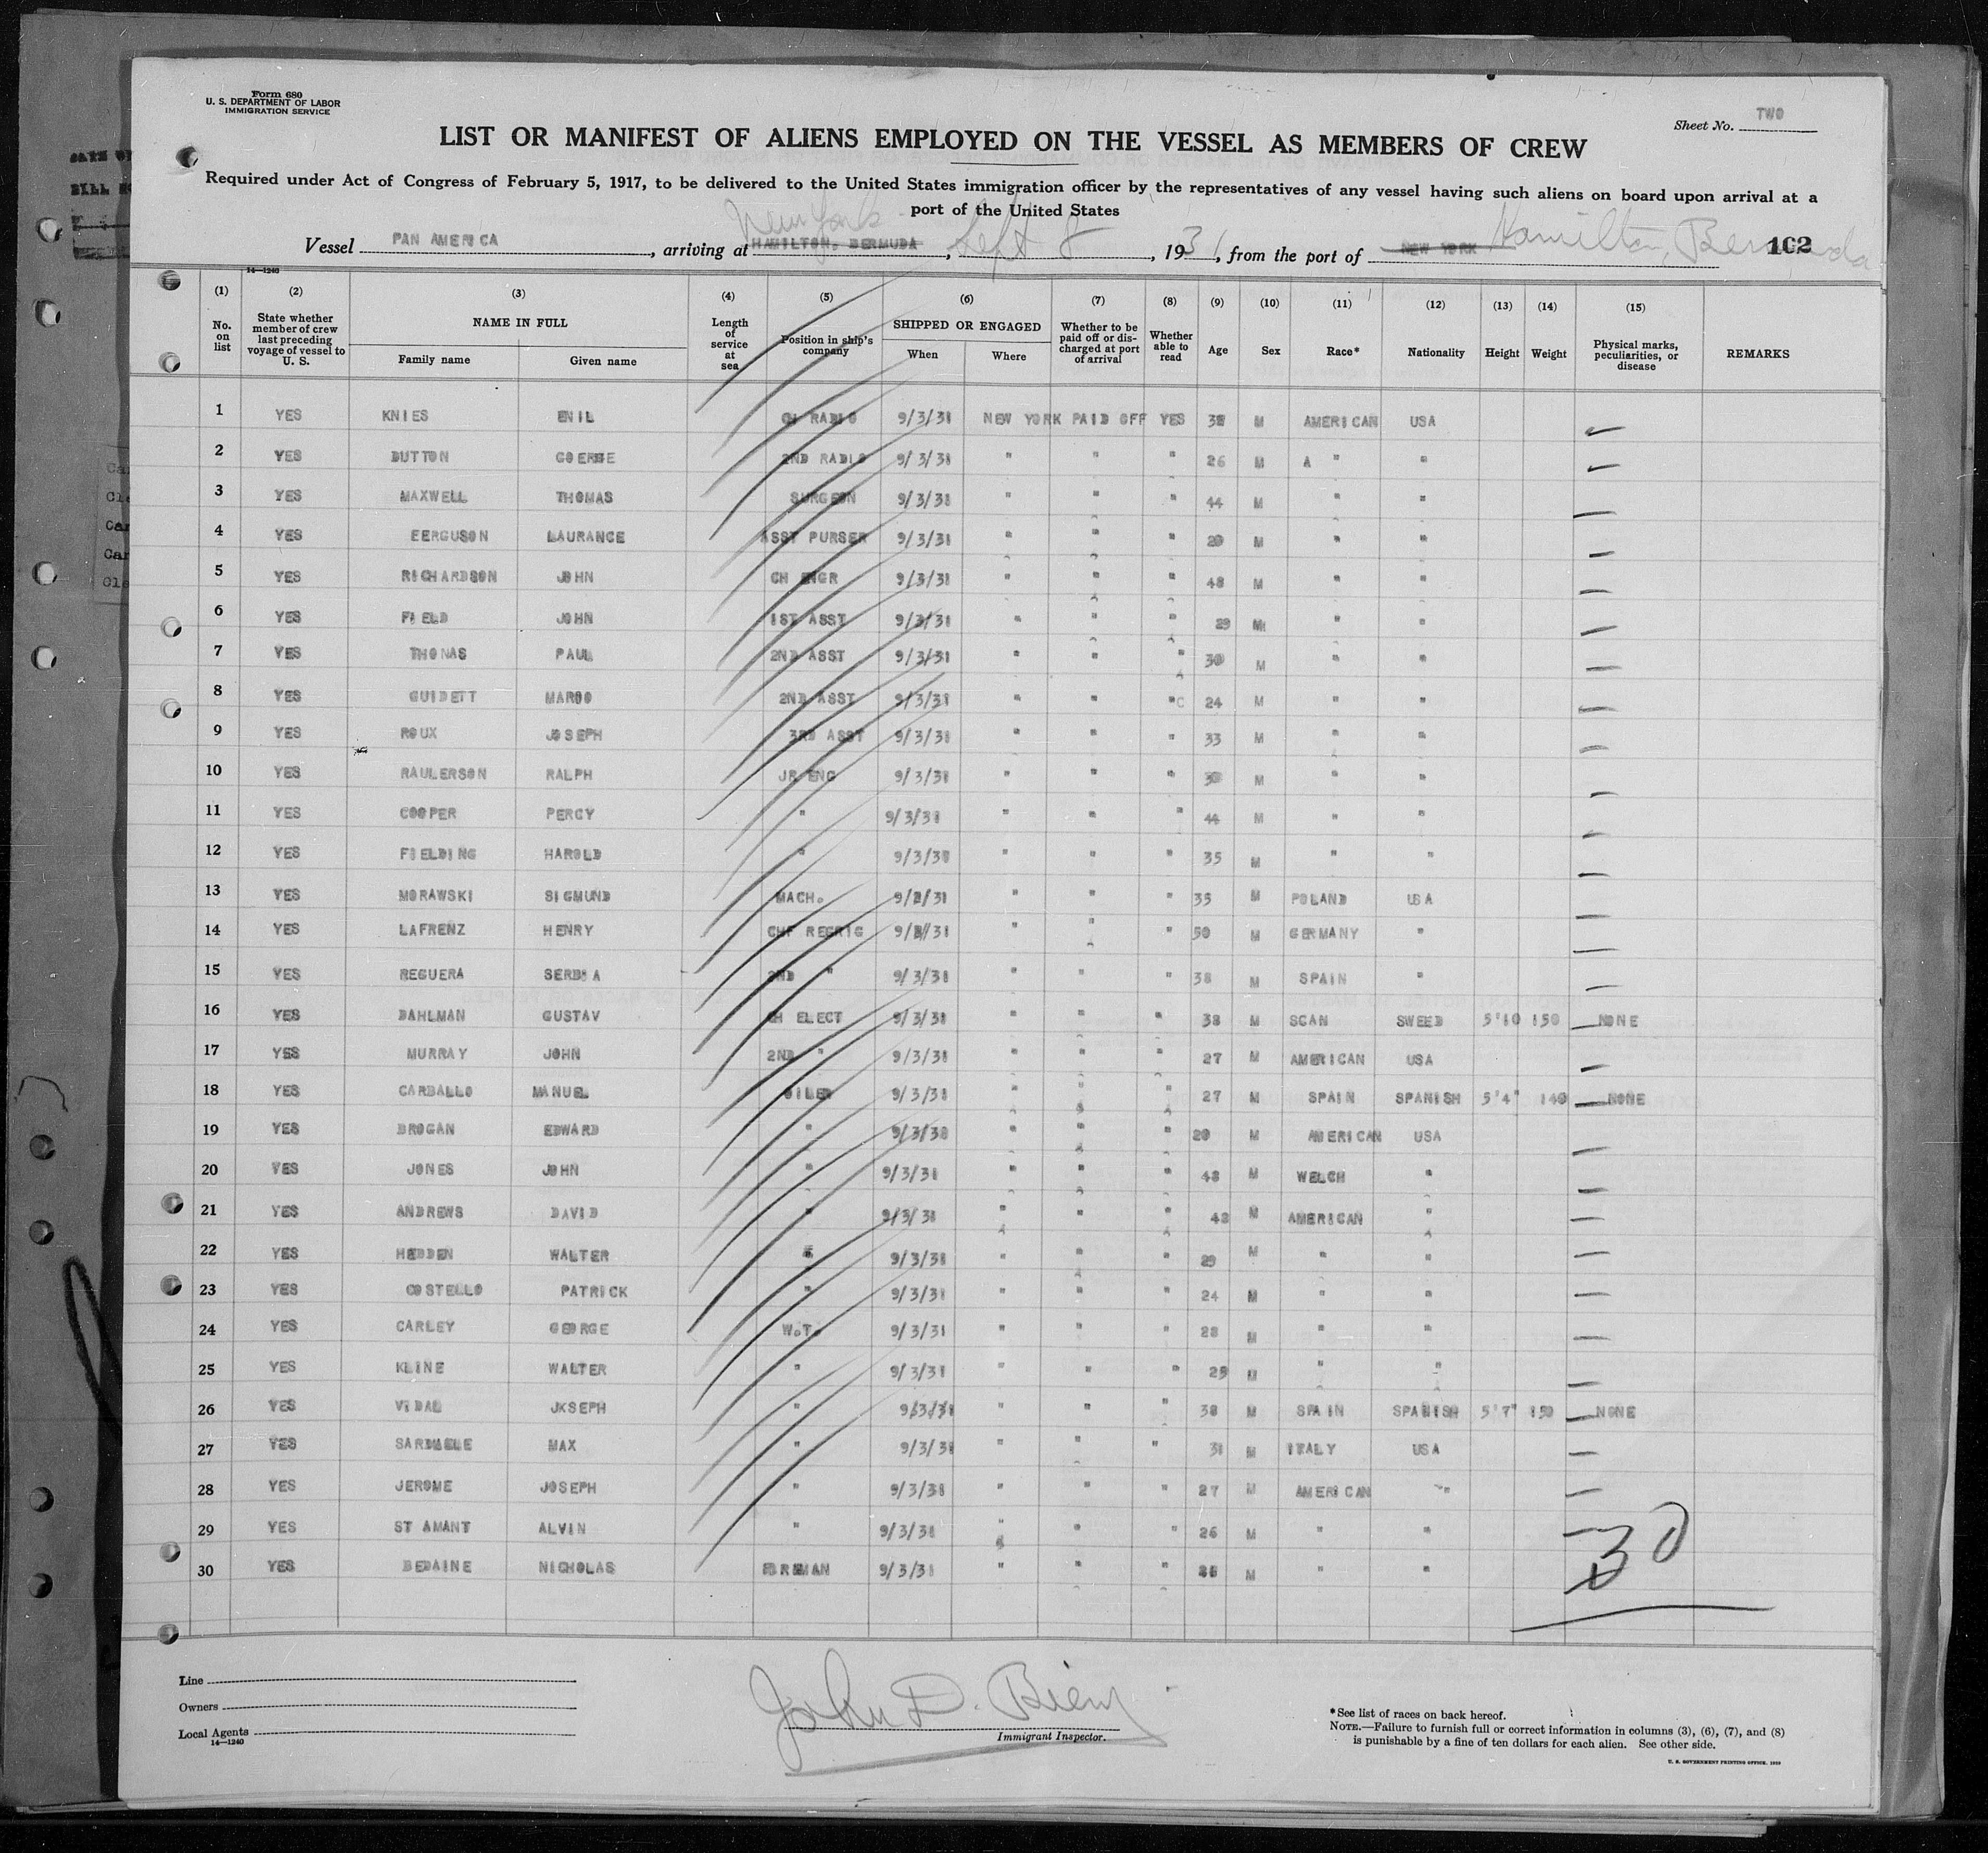 Form 680
U. S. DEPARTMENT OF LABOR
IMMIGRATION SERVICE
Sheet No. TWO
LIST OR MANIFEST OF ALIENS EMPLOYED ON THE VESSEL AS MEMBERS OF CREW
Required under Act of Congress of February 5, 1917, to be delivered to the United States immigration officer by the representatives of any vessel having such aliens on board upon arrival at a
port of the United States
New York
Vessel PAN AMERICA, arriving at HAMILTON, BERMUDA, Sept 8, 1931, from the port of NEW YORK Hamilton, Bermuda 102
14—1240
(1) (2) (3) (4) (5) (6) (7) (8) (9) (10) (11) (12) (13) (14) (15)
No. on list State whether member of crew last preceding voyage of vessel to U. S. NAME IN FULL Family name Given name Length of service at sea Position in ship's company SHIPPED OR ENGAGED When Where Whether to be paid off or discharged at port of arrival Whether able to read Age Sex Race* Nationality Height Weight Physical marks, peculiarities, or disease REMARKS
1 YES KNIES ENIL CH RADIO 9/3/31 NEW YORK PAID OFF YES 38 M AMERICAN USA
2 YES DUTTON GOERGE 2ND RADIO 9/3/31 " " " 26 M A " "
3 YES MAXWELL THOMAS SURGEON 9/3/31 " " " 44 M " "
4 YES EERGUSON LAURANCE ASST PURSER 9/3/31 " " " 29 M " "
5 YES RICHARDSON JOHN CH ENGR 9/3/31 " " " 48 M " "
6 YES FIELD JOHN 1ST ASST 9/3/31 " " " 29 M " "
7 YES THONAS PAUL 2ND ASST 9/3/31 " " " 30 M " "
8 YES GUIDETT MARGO 2ND ASST 9/3/31 " " " 24 M " "
9 YES ROUX JOSEPH 3RD ASST 9/3/31 " " " 33 M " "
10 YES RAULERSON RALPH JR ENG 9/3/31 " " " M " "
11 YES COOPER PERCY " 9/3/31 " " " 44 M " "
12 YES FIELDING HAROLD " 9/3/31 " " " 35 M " "
13 YES MORAWSKI SIGMUND MACH. 9/3/31 " " " 35 M POLAND USA
14 YES LAFRENZ HENRY CHF REGRIG 9/3/31 " " " 50 M GERMANY "
15 YES REGUERA SERBIA 2ND " 9/3/31 " " " 38 M SPAIN "
16 YES DAHLMAN GUSTAV CH ELECT 9/3/31 " " " 38 M SCAN SWEED 5'10 150 NONE
17 YES MURRAY JOHN 2ND " 9/3/31 " " " 27 M AMERICAN USA
18 YES CARBALLO MANUEL OILER 9/3/31 " " " 27 M SPAIN SPANISH 5'4" 140 NONE
19 YES BROGAN EDWARD " 9/3/31 " " " 20 M AMERICAN USA
20 YES JONES JOHN " 9/3/31 " " " 48 M WELCH "
21 YES ANDREWS DAVID " 9/3/31 " " " 48 M AMERICAN "
22 YES HEDDEN WALTER " 9/3/31 " " " 29 M " "
23 YES COSTELLO PATRICK " 9/3/31 " " " 24 M " "
24 YES CARLEY GEORGE W.T. 9/3/31 " " " 28 M " "
25 YES KLINE WALTER " 9/3/31 " " " 25 M " "
26 YES VIDAL JKSEPH " 9/3/31 " " " 38 M SPAIN SPANISH 5'7" 150 NONE
27 YES MAX " 9/3/31 " " " 31 M ITALY USA
28 YES JEROME JOSEPH " 9/3/31 " " " 27 M AMERICAN "
29 YES ST AMANT ALVIN " 9/3/31 " " " 26 M " "
30 YES BEDAINE NICHOLAS 9/3/31 " " " M " "
30
Line
Owners
Local Agents
14—1240
John D. Bieny
Immigrant Inspector.
*See list of races on back hereof.
NOTE.—Failure to furnish full or correct information in columns (3), (6), (7), and (8)
is punishable by a fine of ten dollars for each alien. See other side.
U. S. GOVERNMENT PRINTING OFFICE. 1929